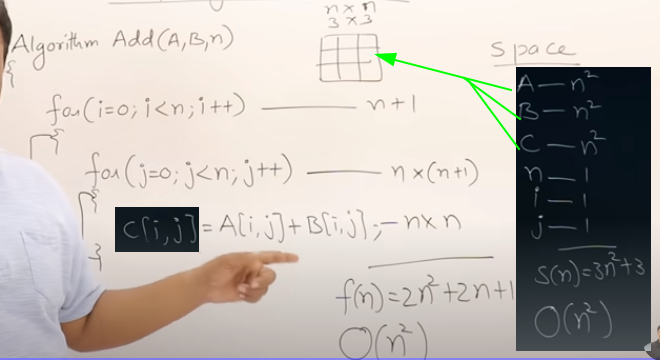 Algorithm Add(A,B,n)
{
for(i=0; i<n; i++) ——— n+1
{
for(j=0; j<n; j++) ——— n×(n+1)
{
C[i,j] = A[i,j]+B[i,j]; — n×n
}
f(n)=2n²+2n+1
O(n²)
n×n
3×3
Space
A — n²
B — n²
C — n²
n — 1
i — 1
j — 1
S(n)=3n²+3
O(n²)